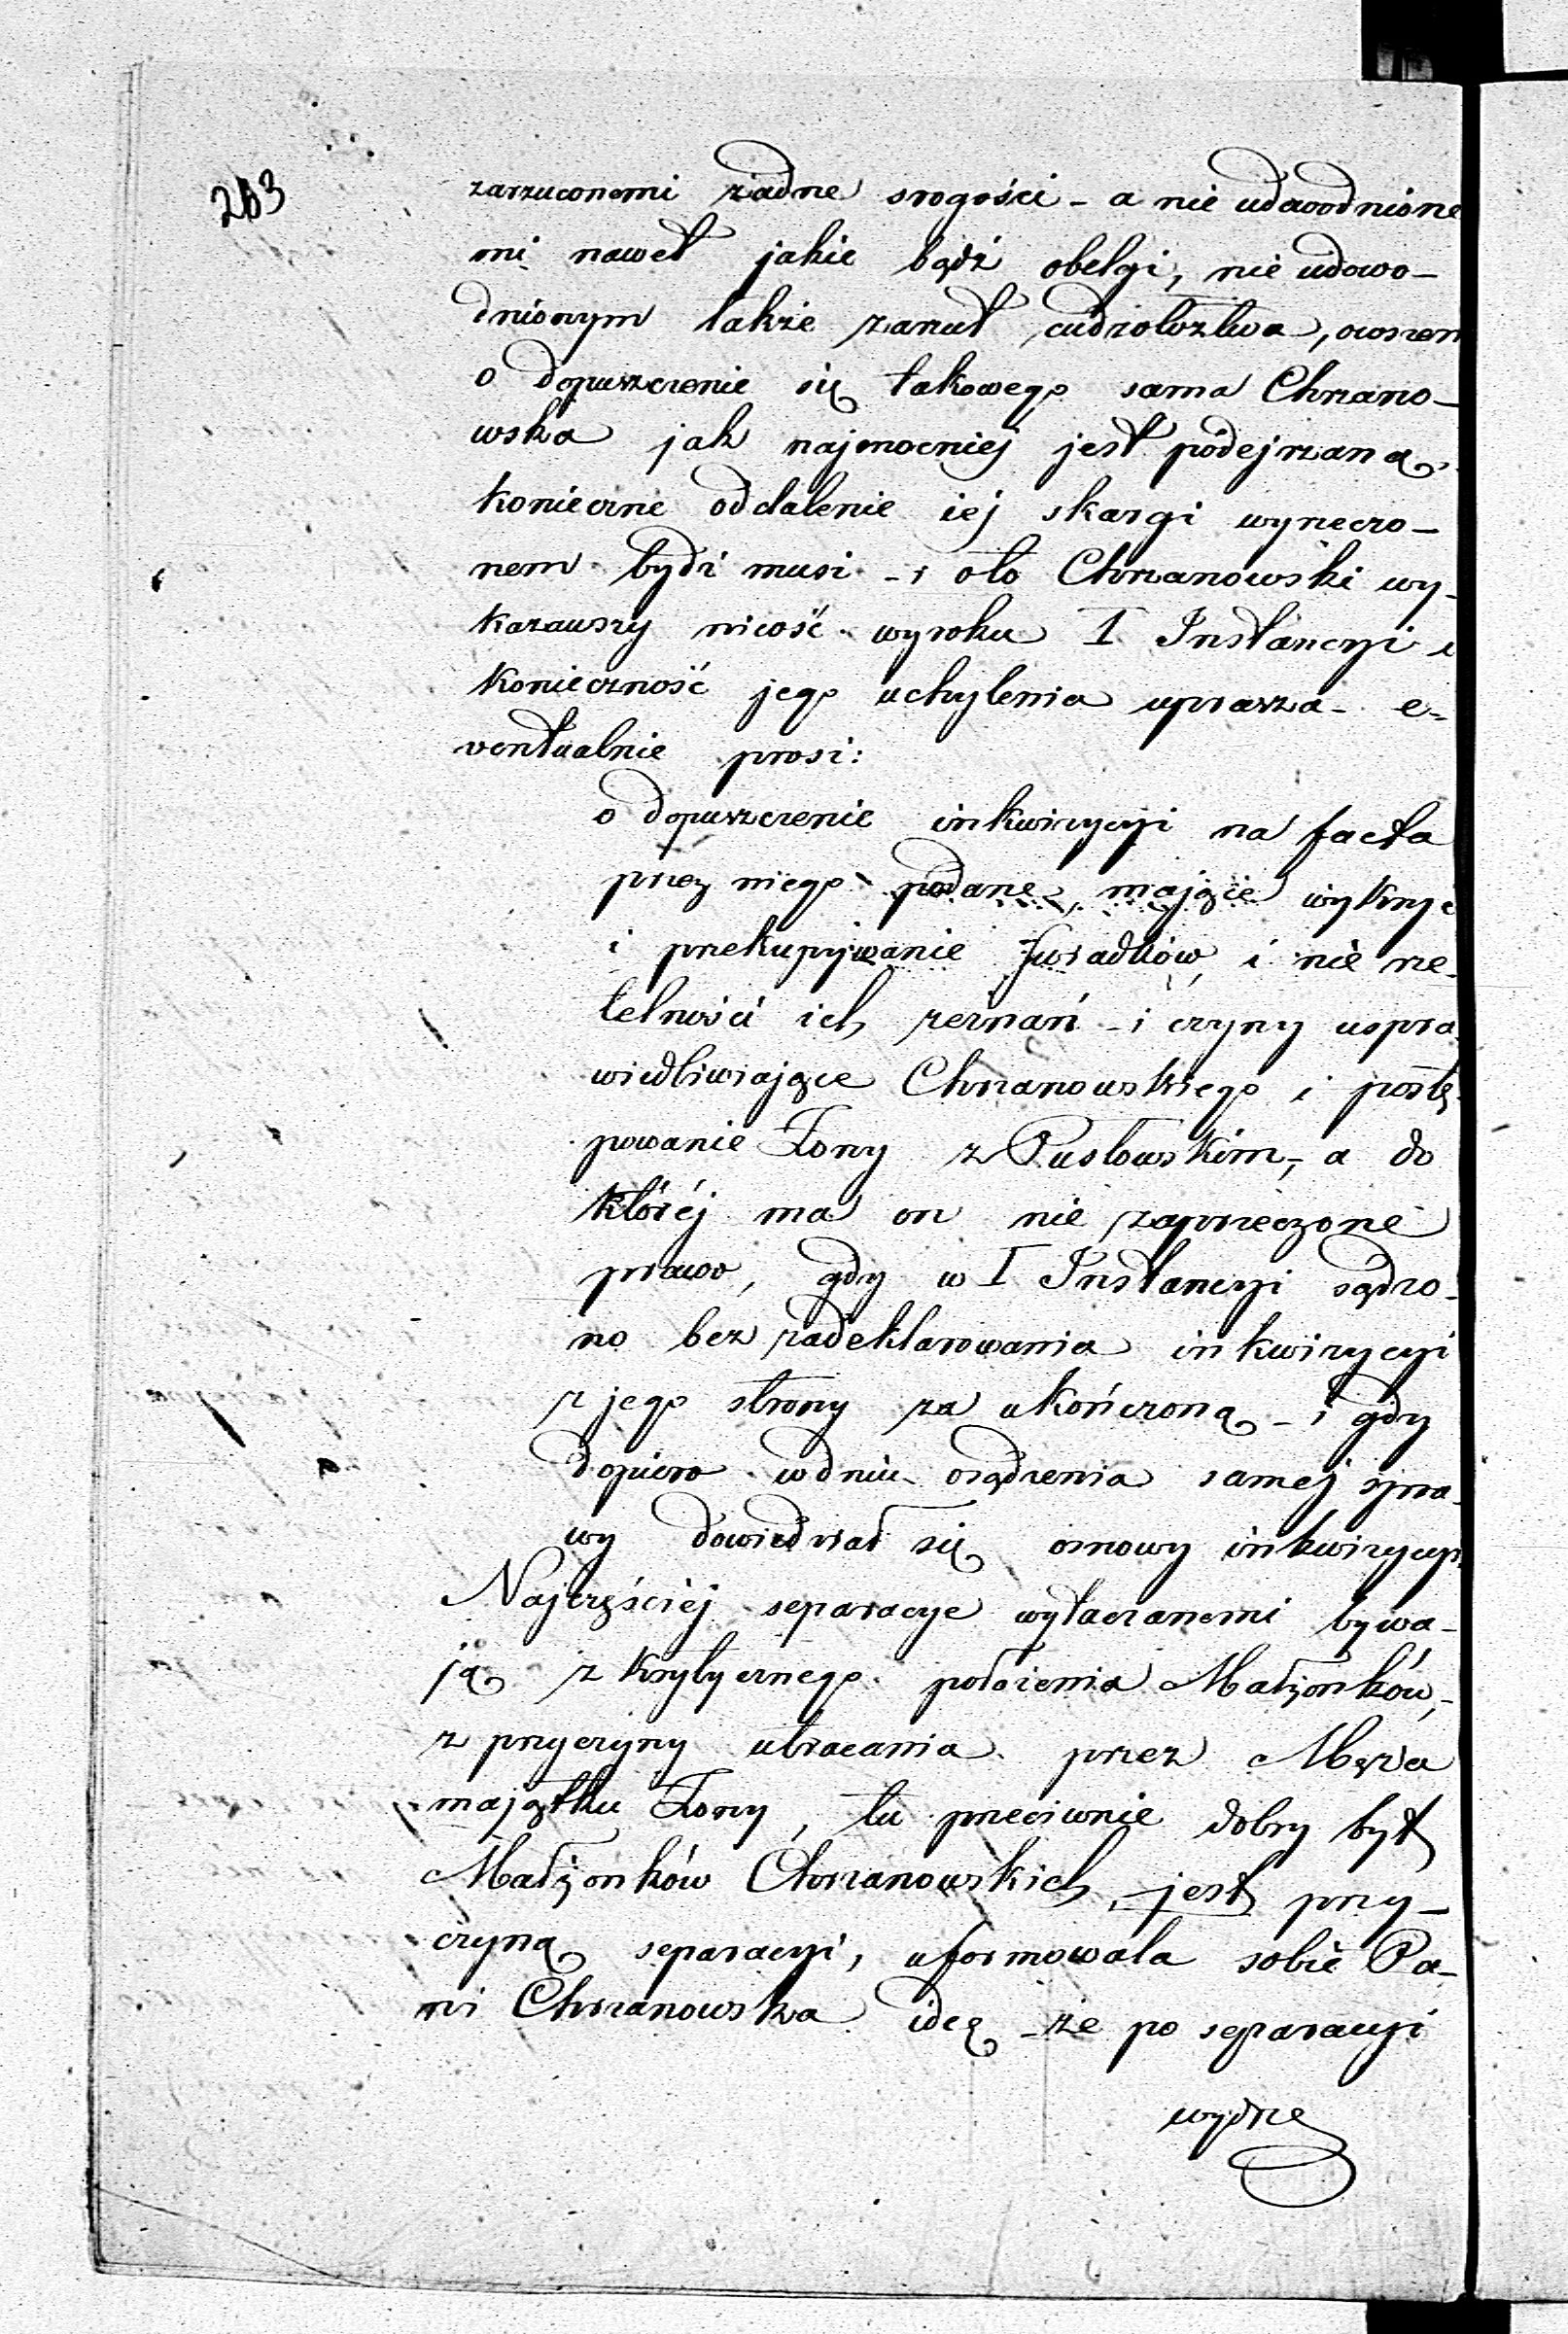 263
zarzuconemi żadne srogości - a nie udowodnione
mi nawet jakie bądź obelgi, nie udowo-
dnionym także zarzut cudzołoztwa, owszem
o dopuszczenie się takowego sama Chrzano-
wska jak najmocniej jest podejrzaną,
konieczne oddalenie iej skargi wyrzeczo-
nem bydź musi - i oto Chrzanowski wy-
kazawszy nicość wyroku I Instancyi i
konieczność jego uchylenia uprasza - e-
wentualnie prosi:
o dopuszczenie inkwizycyi na facta
przez niego podane, mające wykryć
i przekupywanie Świadków i nie rze-
telności ich zeznań - i czyny uspra-
wiedliwiające Chrzanowskiego i postę-
powanie Żony z Pusłowskim, a do
któréj ma on nie zaprzeczone
prawo, gdy w I Instancyi sądzo-
no bez zadeklarowania inkwizycyi
z jego strony za ukończoną - i gdy
dopiero w dniu osądzenia samej spra-
wy dowiedział się osnowy inkwizycyi.
Najczęściéj separacye wytaczanemi bywa-
ją z krytycznego położenia Małżonków,-
z przyczyny utracania przez Męża
majątku Żony, tu przeciwnie dobry byt
Małżonków Chrzanowskich jest przy-
czyną separacyi, uformowała sobie Pa-
ni Chrzanowska ideę - że po separacyi
wydrze